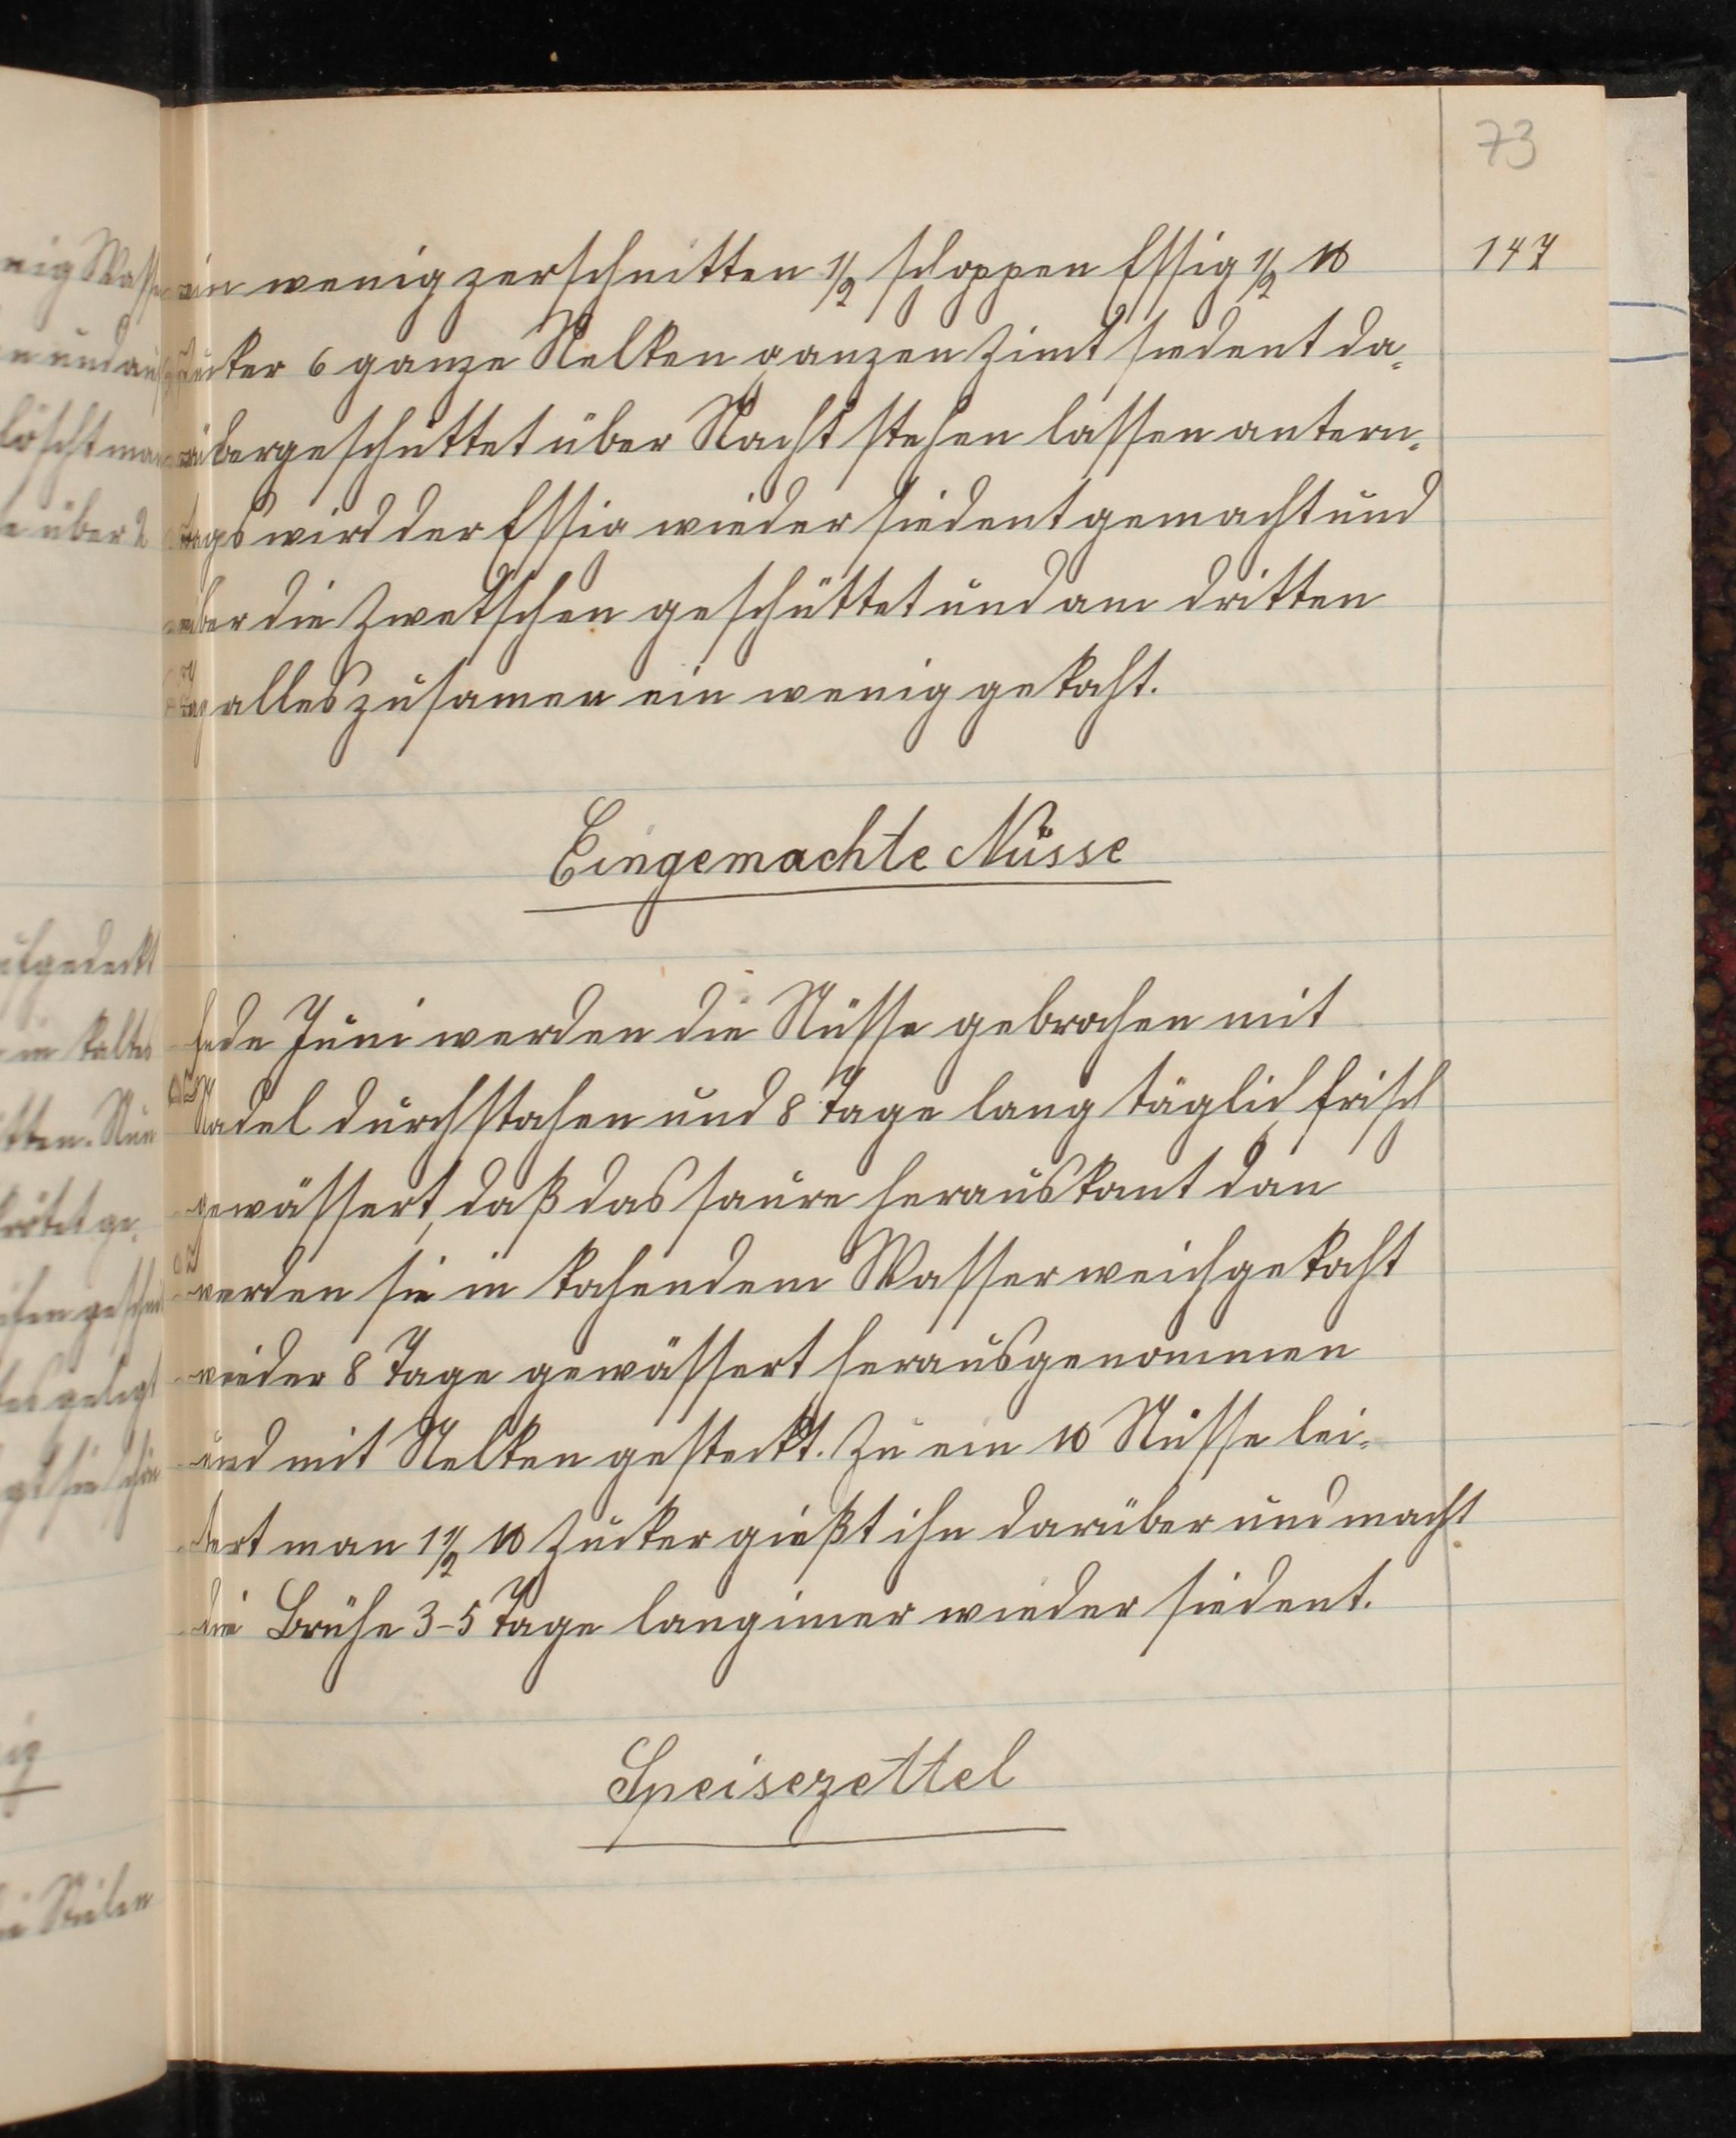 73
147
ein wenig zerschnitten 1/2 schoppen Essig 1/2 ℔
Zucker 6 ganze Nelken ganzen Zimt siedent da-
rübergeschüttet über Nacht stehen lassen antern-
tags wird der Essig wieder siedent gemacht und
über die Zwetschen geschüttet und am dritten
Tag alles zusamen ein wenig gekocht.
Eingemachte Nüsse
Ende Juni werden die Nüsse gebrochen mit
Nadel durchstochen und 8 Tage lang täglich frisch
gewässert, daß das saure herauskomt dan
werden sie in kochendem Wasser weichgekocht
wieder 8 Tage gewässert herausgenommen
und mit Nelken gesteckt. Zu ein ℔ Nüsse lei-
tert man 1 1/2 ℔ Zucker gießt ihn darüber und macht
die Brühe 3-5 Tage lang imer wieder siedent.
Speisezettel